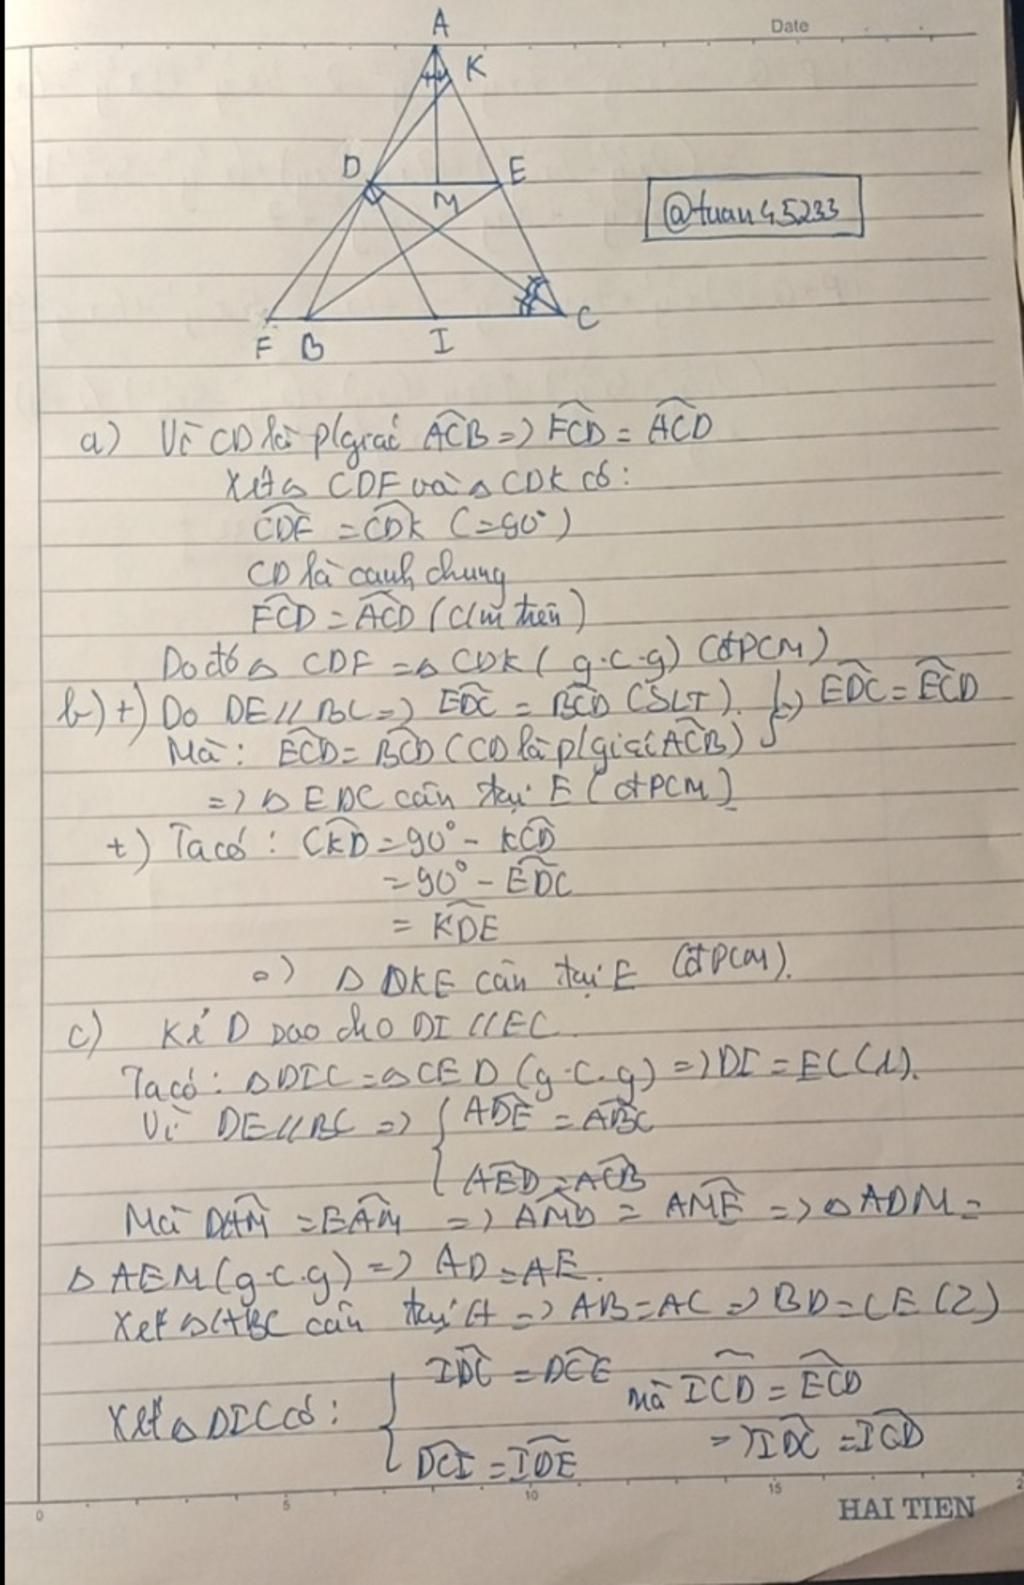 Date
A
K
D
E
M
@tuan45233
F B I C
a) Vì CD là p/giác ACB => FCD = ACD
Xét △ CDF và △ CDK có:
CDF = CDK (=90°)
CD là cạnh chung
FCD = ACD (c/m trên)
Do đó △ CDF = △ CDK (g.c.g) (đPCM)
b) +) Do DE // BC => EDC = BCD (SLT). } => EDC = ECD
Mà: ECD = BCD (CD là p/giác ACB)
=> △ EDC cân tại E (đPCM)
+) Ta có: CKD = 90° - KCD
= 90° - EDC
= KDE
=> △ DKE cân tại E (đPCM).
c) Kẻ D sao cho DI // EC
Ta có: △DIC = △CED (g.c.g) => DI = EC (1).
Vì DE // BC => { ADE = ABC
AED = ACB
Mà DAM = EAM => AMD = AME => △ ADM =
△ AEM (g.c.g) => AD = AE.
Xét △ABC cân tại A => AB = AC => BD = CE (2)
IDC = DCE Mà ICD = ECD
Xét △ DIC có: {
DCI = IDE => IDC = ICD
0 5 10 15 2
HAI TIEN